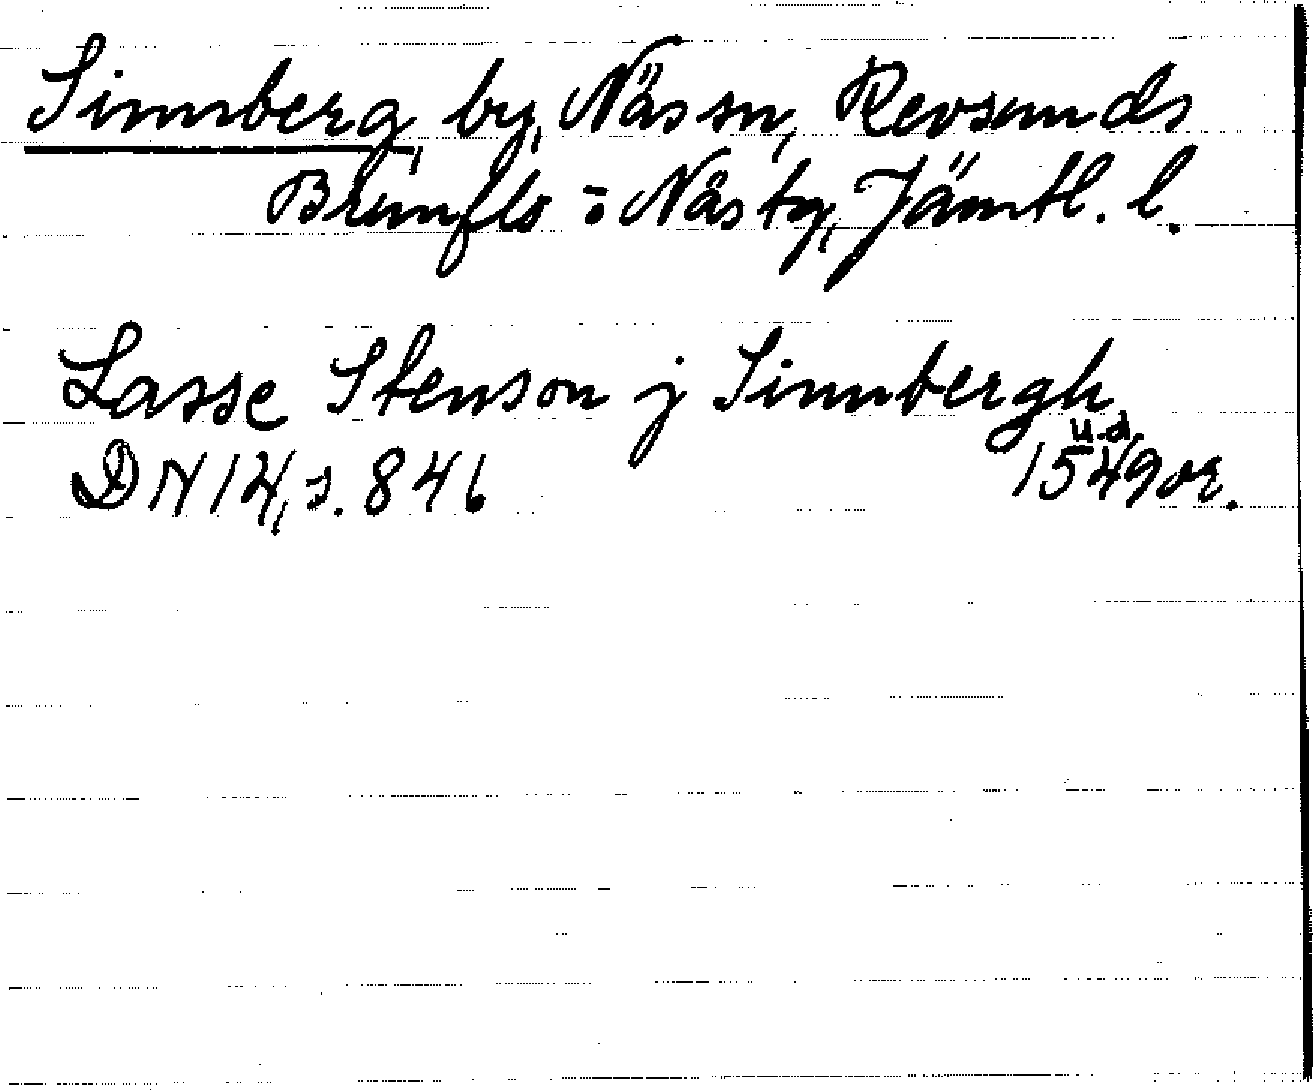 Sinnberg, by, Näs sn, Revsunds
Brunflo o Näs tg, Jämtl. l.
Lasse Stenson j Sinnbergh
u.d.
DN 14, s. 846 1549 or.